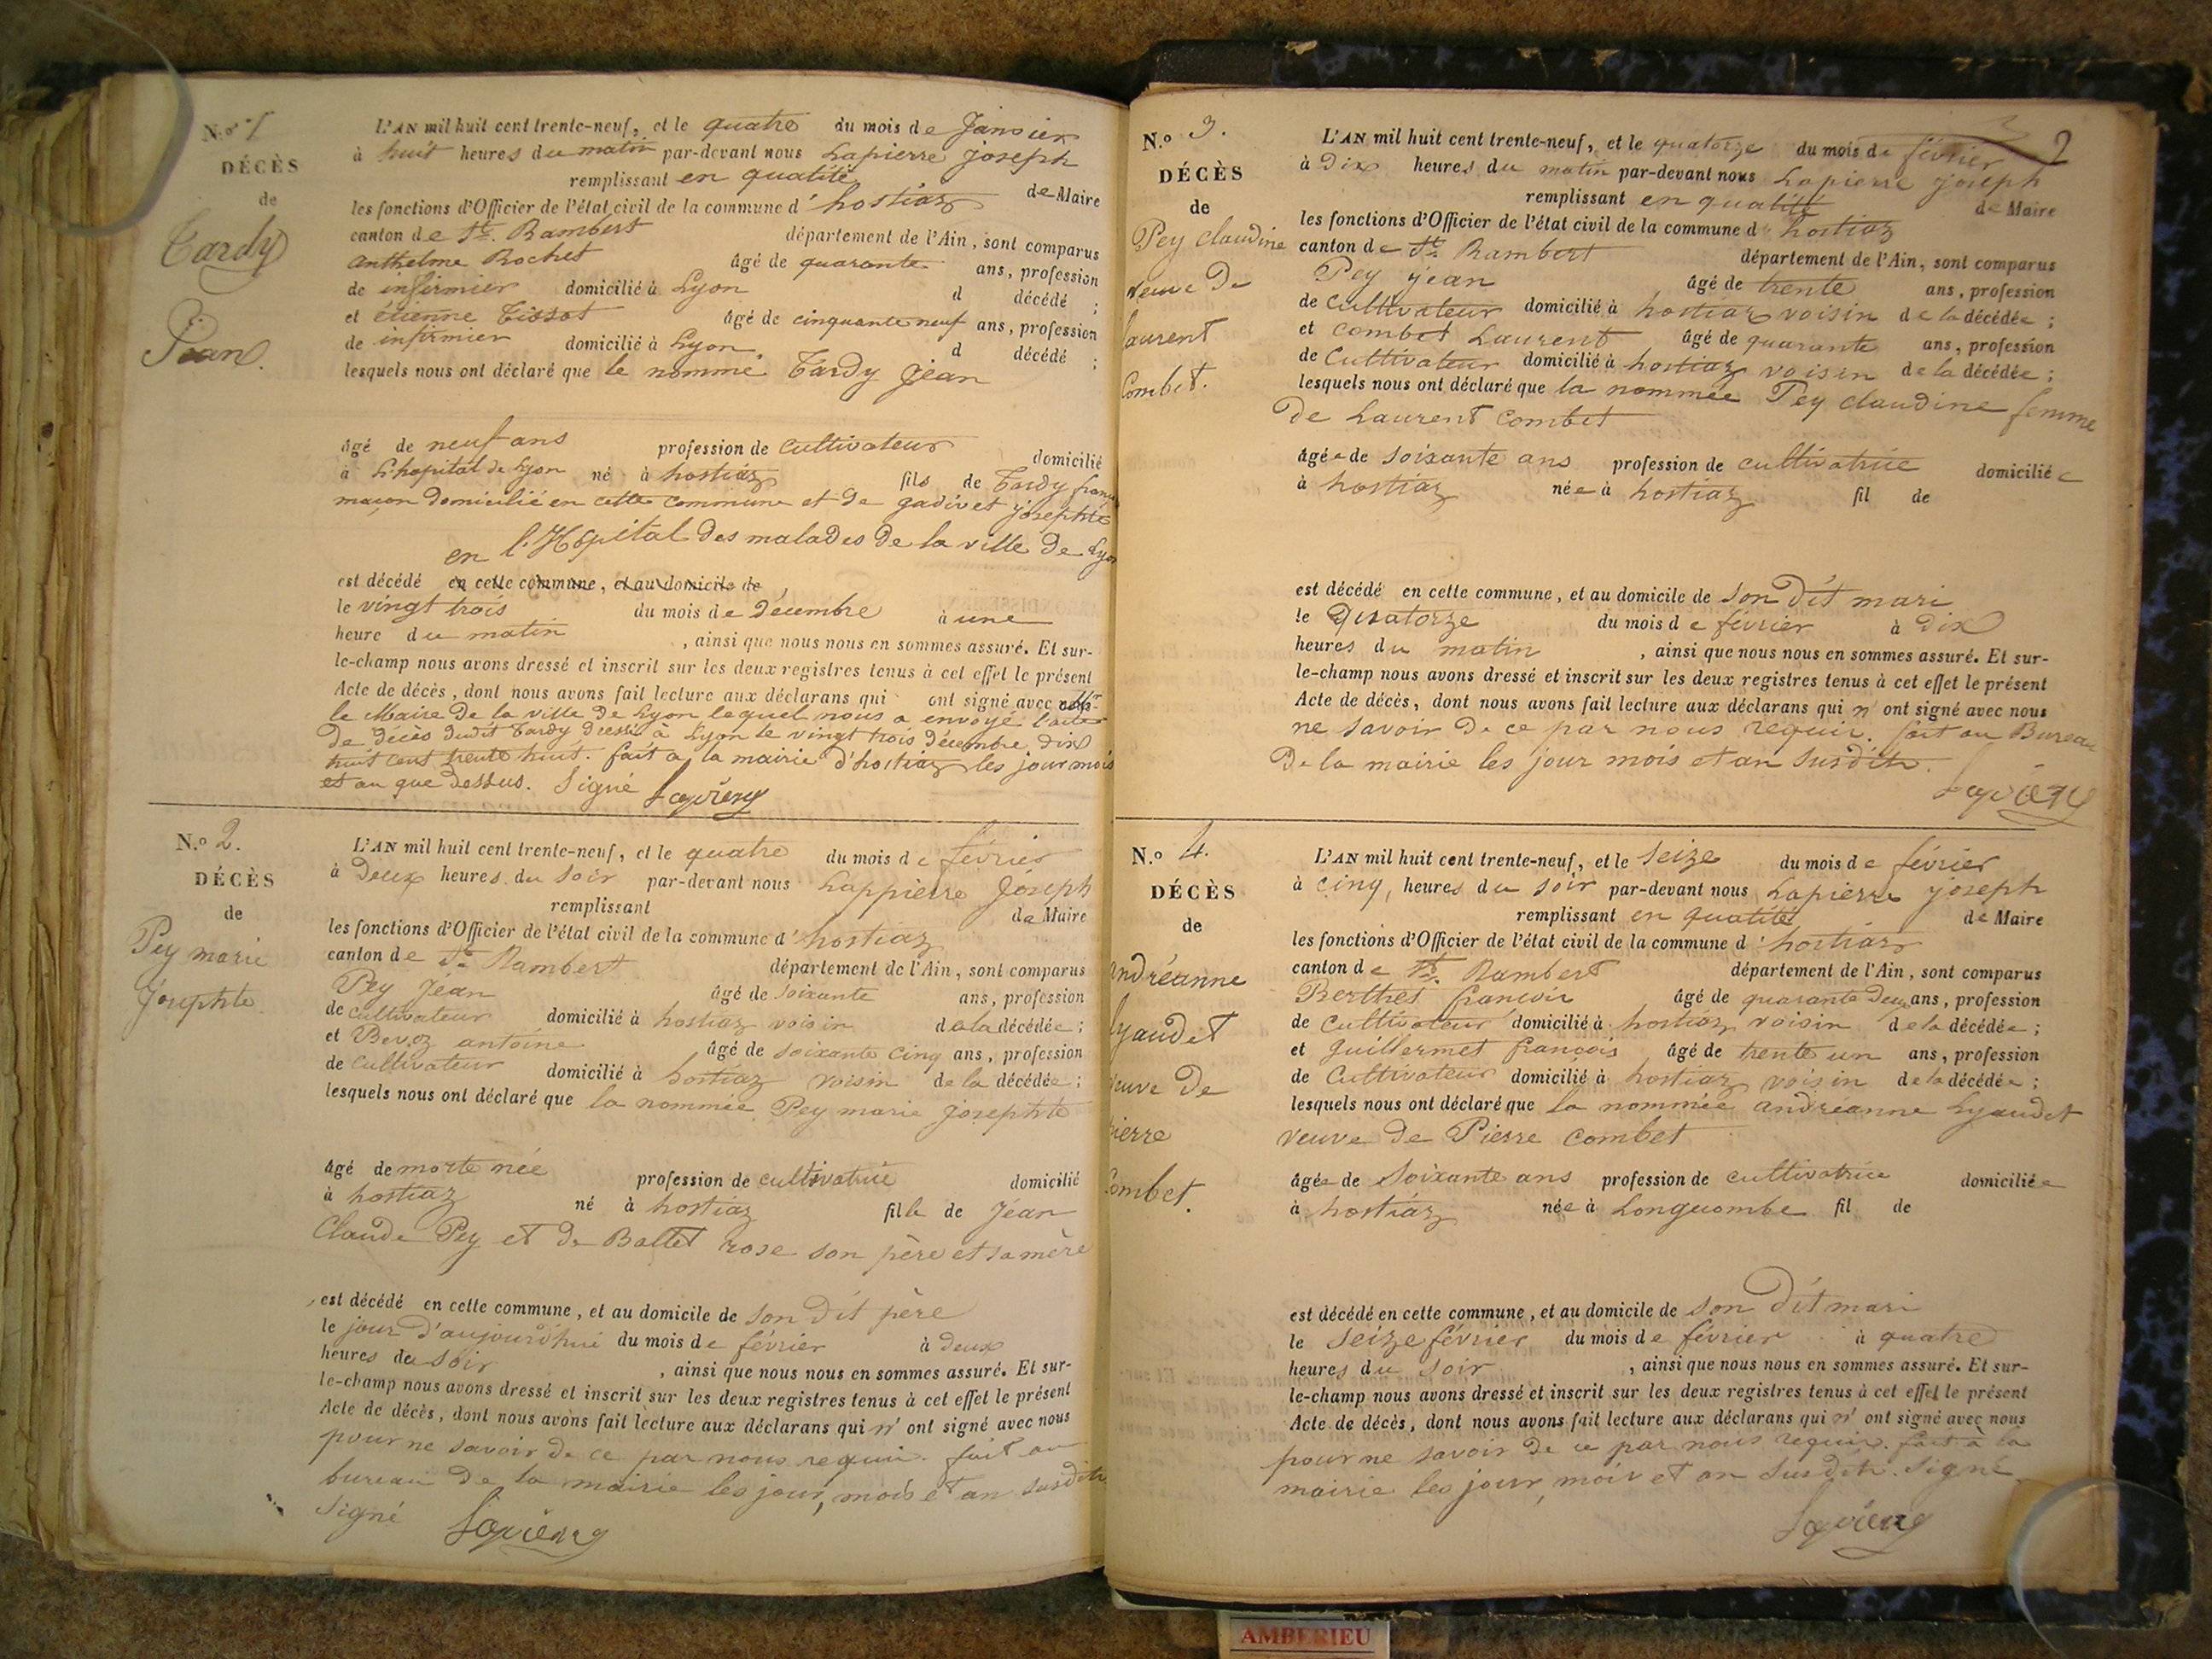 N.º 1
DÉCÈS
de
Tardy
Jean.
L'AN mil huit cent trente-neuf, et le quatre du mois de Janvier
à huit heures du matin par-devant nous Lapierre joseph
remplissant en qualité de Maire
les fonctions d'Officier de l'état civil de la commune d'hostiaz
canton de St. Rambert département de l'Ain, sont comparus
anthelme Rochet âgé de quarante ans, profession
de infirmier domicilié à Lyon d décédé ;
et étienne Tissot âgé de cinquante neuf ans, profession
de infirmier domicilié à Lyon d décédé ;
lesquels nous ont déclaré que le nommé Tardy jean
âgé de neuf ans profession de cultivateur domicilié
à L'hopital de Lyon né à hostiaz fils de Tardy
maçon domicilié en cette commune et de gadivet josephte
en l'Hopital des malades de la ville de Lyon
est décédé en cette commune, et au domicile de
le vingt trois du mois de décembre à une
heure du matin , ainsi que nous nous en sommes assuré. Et sur-
le-champ nous avons dressé et inscrit sur les deux registres tenus à cet effet le présent
Acte de décès, dont nous avons fait lecture aux déclarans qui ont signé avec
le Maire de la ville de Lyon lequel nous a envoyé l'acte
de décès dudit Tardy dressé à Lyon le vingt trois décembre dix
huit cent trente huit. fait a la mairie d'hostiaz les jour mois
et an que dessus. Signé Lapierre
N.º 2.
DÉCÈS
de
Pey marie
Josephte
L'AN mil huit cent trente-neuf, et le quatre du mois de février
à deux heures du soir par-devant nous Lappierre Joseph
remplissant de Maire
les fonctions d'Officier de l'état civil de la commune d'hostiaz
canton de St. Rambert département de l'Ain, sont comparus
Pey Jean âgé de soixante ans, profession
de cultivateur domicilié à hostiaz voisin de la décédée ;
et Bevoz antoine âgé de soixante cinq ans, profession
de cultivateur domicilié à hostiaz voisin de la décédée ;
lesquels nous ont déclaré que la nommée Pey marie josephte
âgé de morte née profession de cultivatrice domicilié
à hostiaz né à hostiaz fille de Jean
Claude Pey et de Ballet rose son père et sa mère
est décédé en cette commune, et au domicile de son dit père
le jour d'aujourd'hui du mois de février à deux
heures du soir , ainsi que nous nous en sommes assuré. Et sur-
le-champ nous avons dressé et inscrit sur les deux registres tenus à cet effet le présent
Acte de décès, dont nous avons fait lecture aux déclarans qui n'ont signé avec nous
pour ne savoir de ce par nous requis. fait au
bureau de la mairie les jour, mois et an susdits
Signé Lapierre
2
N.º 3.
DÉCÈS
de
Pey claudine
veuve de
laurent
Combet.
L'AN mil huit cent trente-neuf, et le quatorze du mois de février
à Dix heures du matin par-devant nous Lapierre joseph
remplissant en qualité de Maire
les fonctions d'Officier de l'état civil de la commune d'hostiaz
canton de St. Rambert département de l'Ain, sont comparus
Pey jean âgé de trente ans, profession
de cultivateur domicilié à hostiaz voisin de la décédée ;
et combet Laurent âgé de quarante ans, profession
de cultivateur domicilié à hostiaz voisin de la décédée ;
lesquels nous ont déclaré que la nommée Pey claudine femme
de Laurent combet
âgée de soixante ans profession de cultivatrice domiciliée
à hostiaz née à hostiaz fil de
est décédé en cette commune, et au domicile de son dit mari
le Quatorze du mois de février à dix
heures du matin , ainsi que nous nous en sommes assuré. Et sur-
le-champ nous avons dressé et inscrit sur les deux registres tenus à cet effet le présent
Acte de décès, dont nous avons fait lecture aux déclarans qui n'ont signé avec nous
ne savoir de ce par nous requis. fait au Bureau
de la mairie les jour mois et an susdits.
Lapierre
N.º 4.
DÉCÈS
de
andréanne
lyaudet
veuve de
pierre
Combet.
L'AN mil huit cent trente-neuf, et le seize du mois de février
à cinq, heures du soir par-devant nous Lapierre joseph
remplissant en qualité de Maire
les fonctions d'Officier de l'état civil de la commune d'hostiaz
canton de St. Rambert département de l'Ain, sont comparus
Berthet françois âgé de quarante deux ans, profession
de cultivateur domicilié à hostiaz voisin de la décédée ;
et guillermet françois âgé de trente un ans, profession
de cultivateur domicilié à hostiaz voisin de la décédée ;
lesquels nous ont déclaré que la nommée andréanne Lyaudet
veuve de Pierre combet
âgée de soixante ans profession de cultivatrice domiciliée
à hostiaz née à Longecombe fil de
est décédé en cette commune, et au domicile de son dit mari
le seize février du mois de février à quatre
heures du soir , ainsi que nous nous en sommes assuré. Et sur-
le-champ nous avons dressé et inscrit sur les deux registres tenus à cet effet le présent
Acte de décès, dont nous avons fait lecture aux déclarans qui n'ont signé avec nous
pour ne savoir de ce par nous requis. fait à la
mairie les jour, mois et an susdits. Signé
Lapierre
AMBERIEU